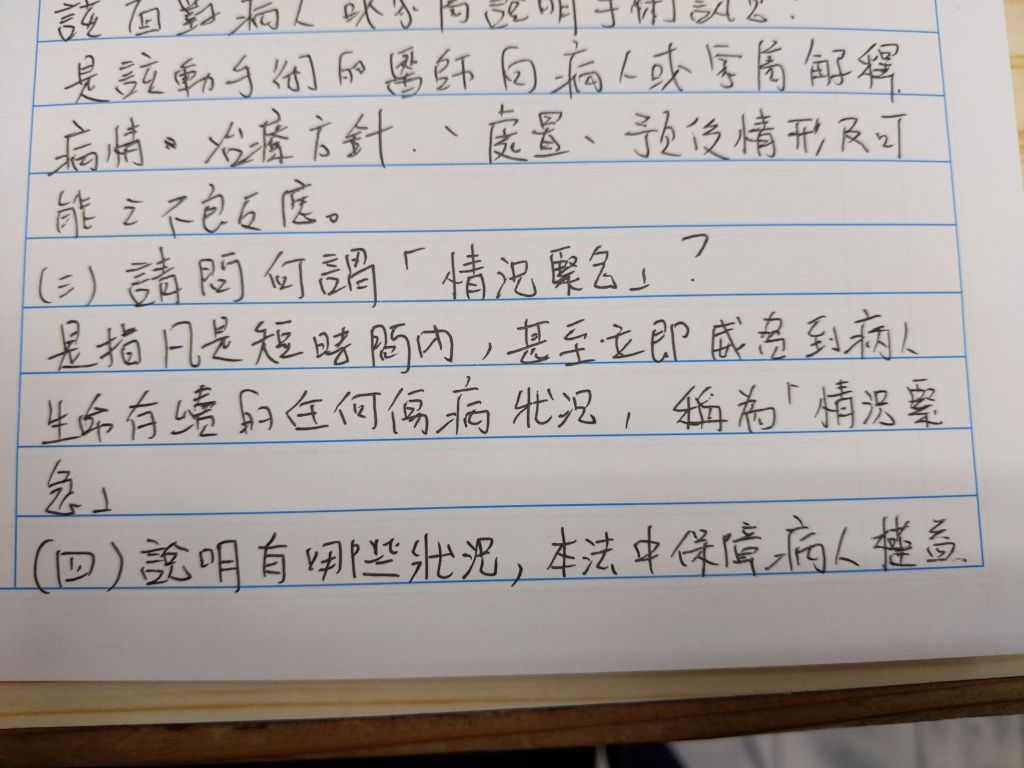 該面對病人或家屬說明手術訊息?
是該動手術的醫師向病人或家屬解釋
病情。治療方針.、處置、預後情形及可
能之不良反應。
(三)請問何謂「情況緊急」?
是指凡是短時間內,甚至立即威脅到病人
生命存續的任何傷病狀況,稱為「情況緊
急」
(四)說明有哪些狀況,本法中保障病人權益